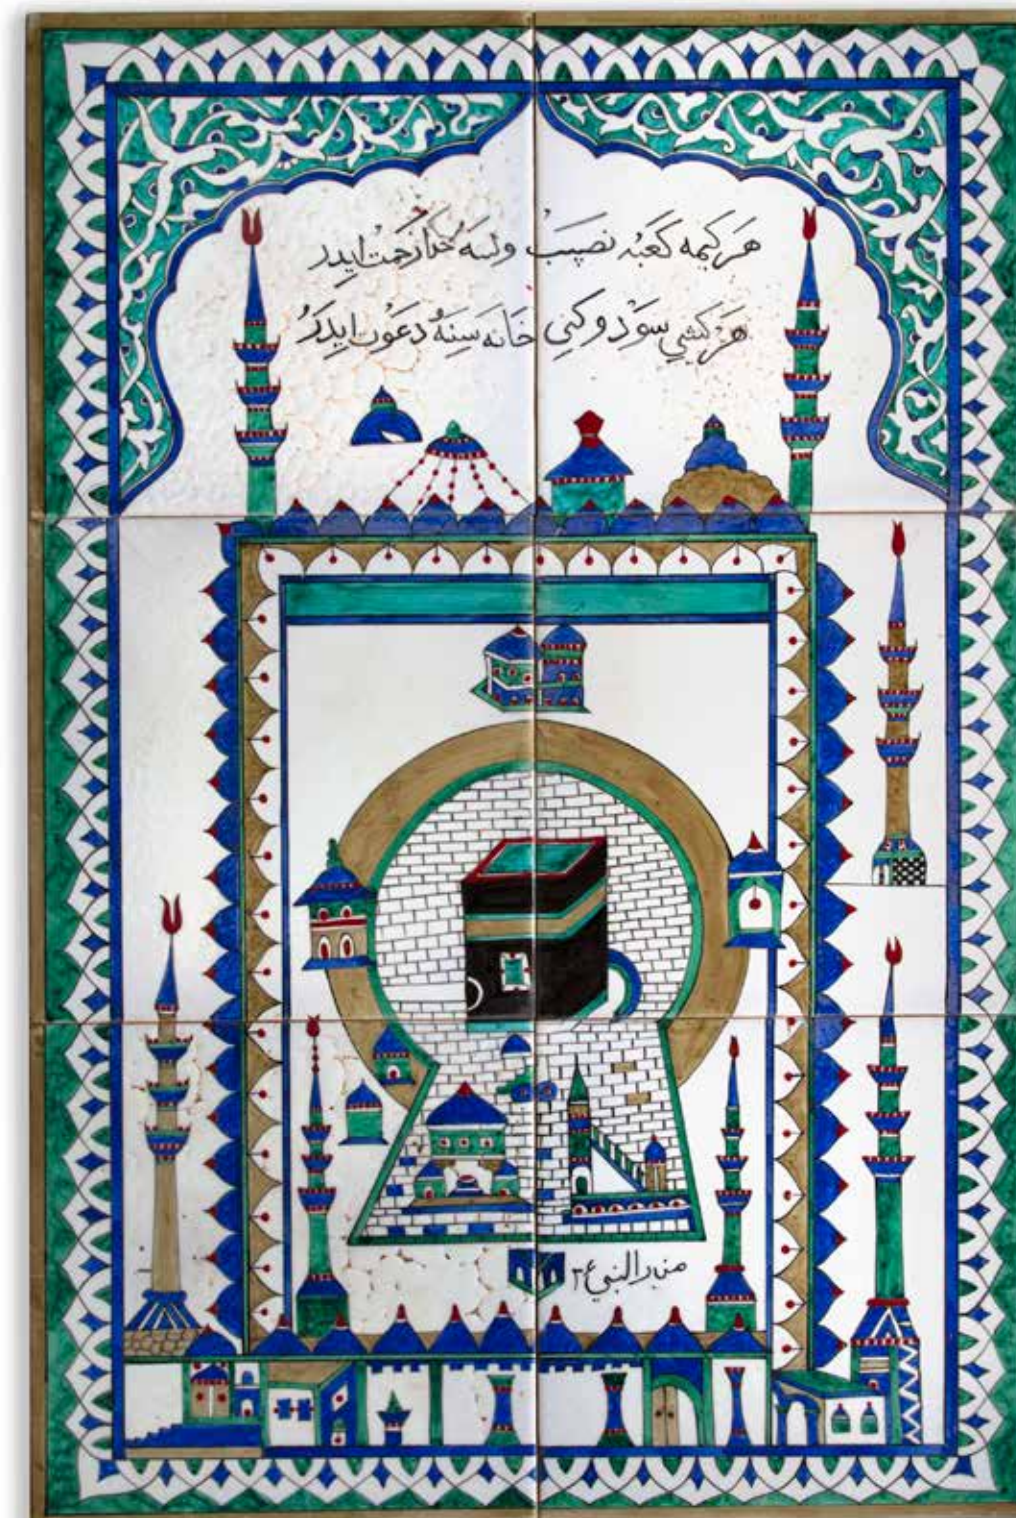 هر كيمه كعبه نصيب ولسه خدا رحمت ايدر
هر كشي سودوكني خانه سنه دعوت ايدر
منبر النبي ع م